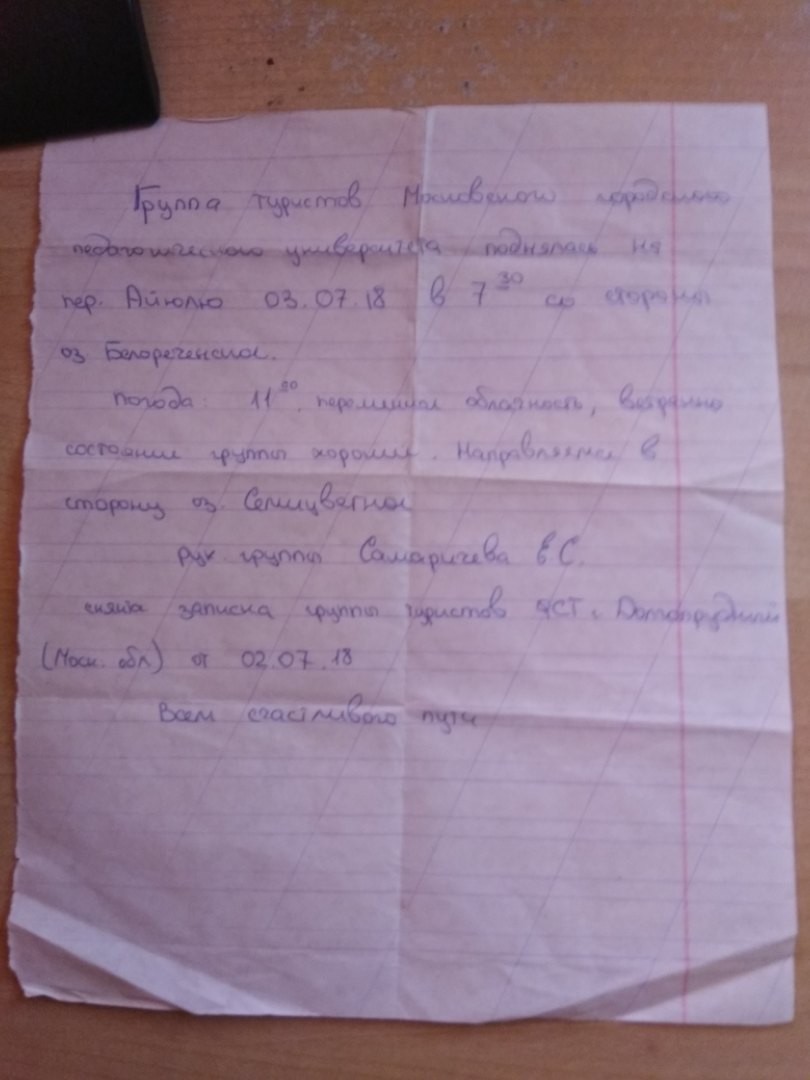 Группа туристов Московского городского
педагогического университета поднялась на
пер. Айюлю 03.07.18 в 7³⁰ со стороны
оз Белореченское.
погода: переменная облачность,
состояние группы хорошее. Направляемся в
сторону оз. Семицветное
рук группы Самаричева В С.
снята записка группы туристов ФСТ г. Долгопрудный
(Моск. обл) от 02.07.18
Всем счастливого пути